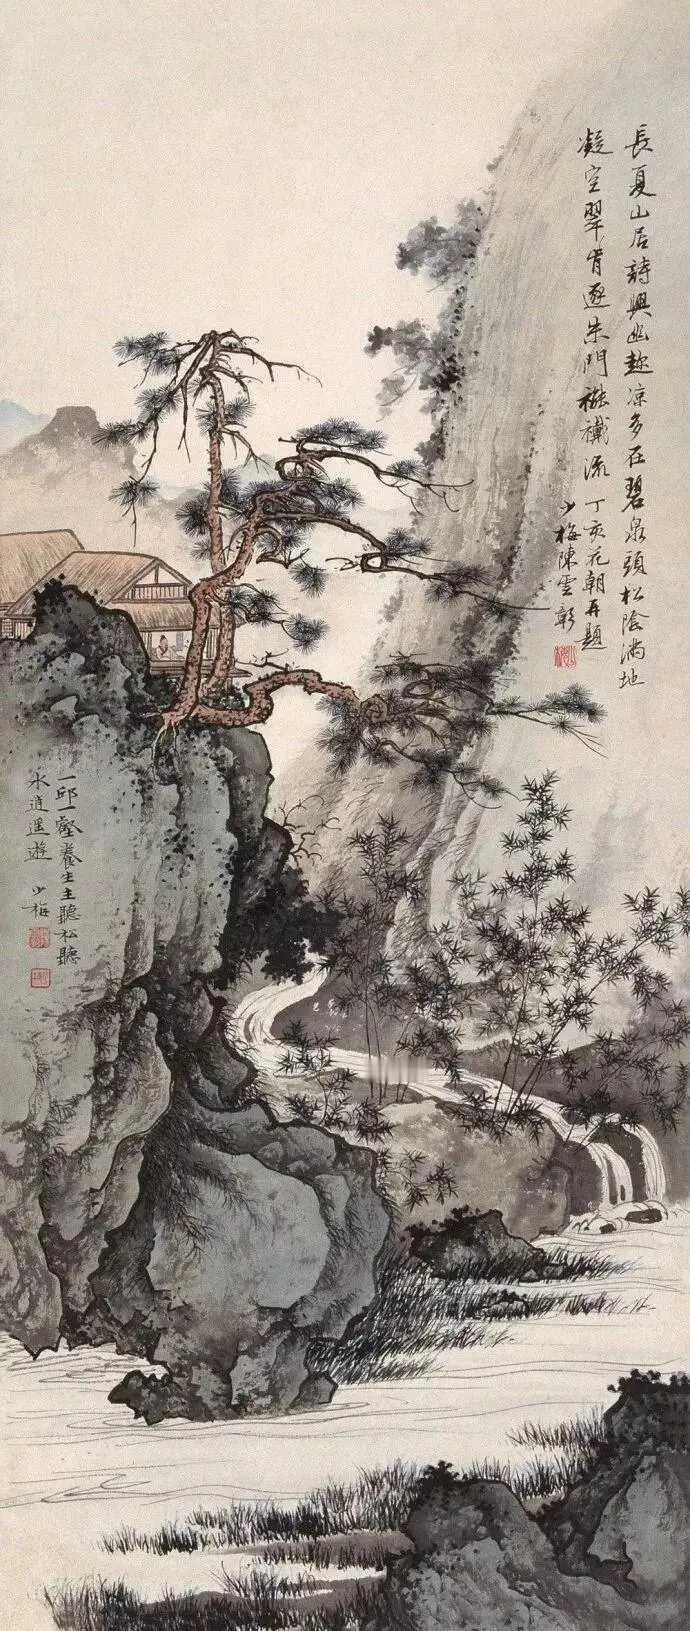 長夏山居詩興幽趁凉多在碧泉頭松陰滿地
凝空翠肯逐朱門襪襶流 丁亥花朝再題
少梅陳雲彰
一邱一壑養生主聽松聽
水逍遥遊 少梅